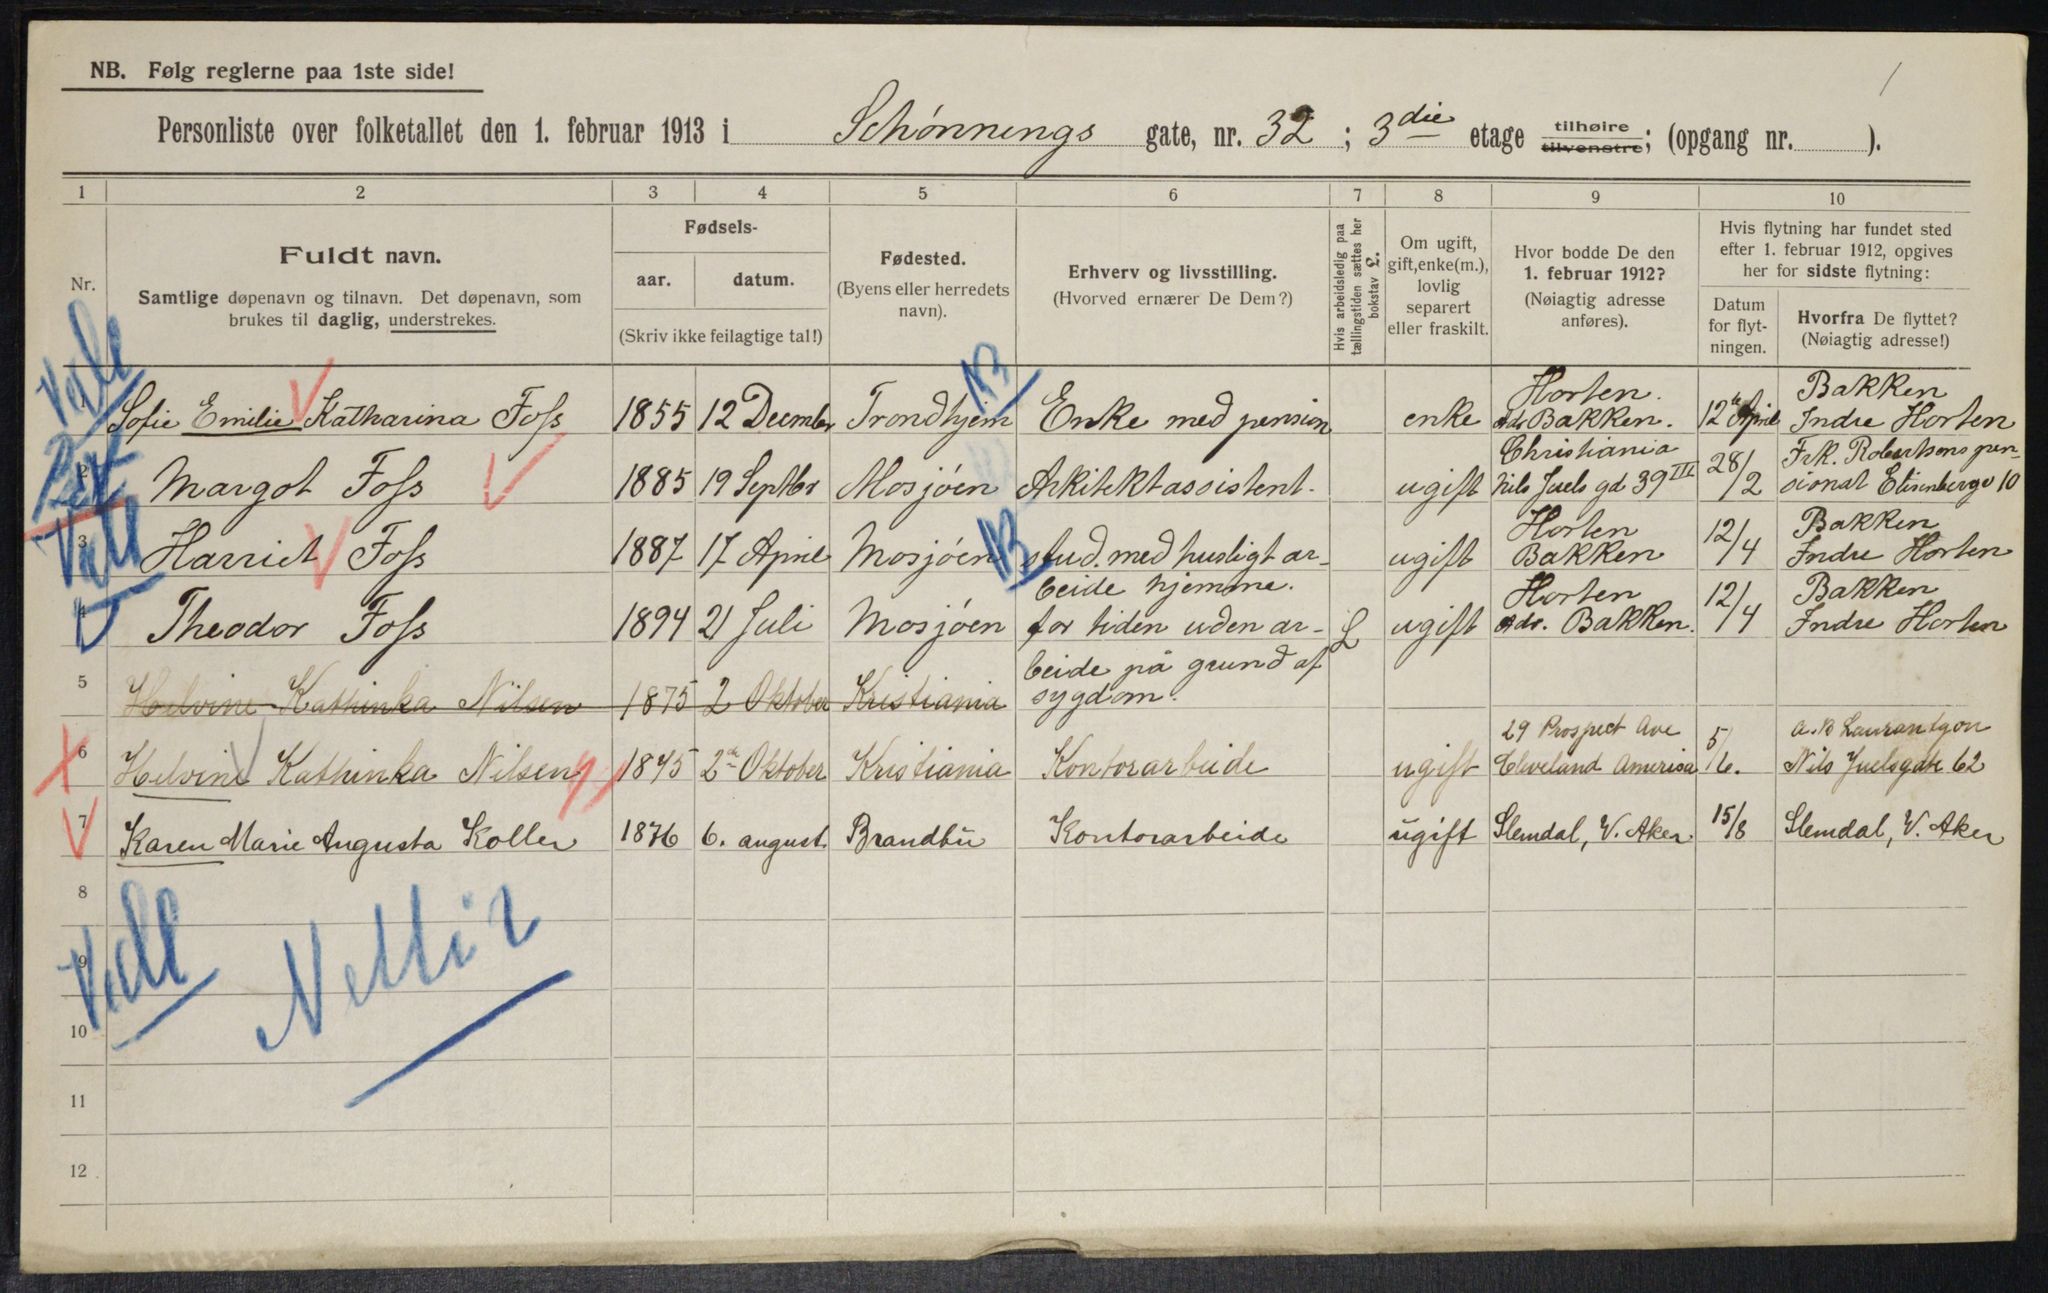 NB. Følg reglerne paa 1ste side!
Personliste over folketallet den 1. februar 1913 i Schønnings gate, nr. 32 ; 3die etage tilhøire tilvenstre; (opgang nr. ).
1 2 3 4 5 6 7 8 9 10
Nr.
Fuldt navn.
Samtlige døpenavn og tilnavn. Det døpenavn, som
brukes til daglig, understrekes.
Fødsels-
aar. datum.
(Skriv ikke feilagtige tal!)
Fødested.
(Byens eller herredets
navn).
Erhverv og livsstilling.
(Hvorved ernærer De Dem?)
Hvis arbeidsledig paa
tællingstiden sættes her
bokstav L.
Om ugift,
gift, enke(m.),
lovlig
separert
eller fraskilt.
Hvor bodde De den
1. februar 1912?
(Nøiagtig adresse
anføres).
Hvis flytning har fundet sted
efter 1. februar 1912, opgives
her for sidste flytning:
Datum
for flyt-
ningen.
Hvorfra De flyttet?
(Nøiagtig adresse!)
Horten. Bakken
1 Sofie Emilie Katharina Foss 1855 12 December Trondhjem Enke med pension enke adr Bakken. 12te April Indre Horten
Christiania Frk. Robertsons pen-
2 Margot Foss 1885 19 Septbr Mosjøen Arkitektassistent. ugift Nils Juels gd 39 III 28/2 sionat Elisenbergv 10
Horten Bakken
3 Harriet Foss 1887 17 April Mosjøen stud. med husligt ar- ugift Bakken 12/4 Indre Horten
beide hjemme. Horten Bakken
4 Theodor Foss 1894 21 Juli Mosjøen for tiden uden ar- L ugift adr. Bakken. 12/4 Indre Horten
beide på grund af
5 Helvine Kathinka Nilsen 1875 2 Oktober Kristiania sygdom.
29 Prospect Ave
6 Helvine Kathinka Nilsen 1845 2de Oktober Kristiania Kontorarbeide ugift Cleveland Amerika 5/6. Nils Juelsgate 62
7 Karen Marie Augusta Koller 1876 6. august. Brandbu Kontorarbeide ugift Slemdal, V. Aker 15/8 Slemdal, V. Aker
8
9
10
11
12